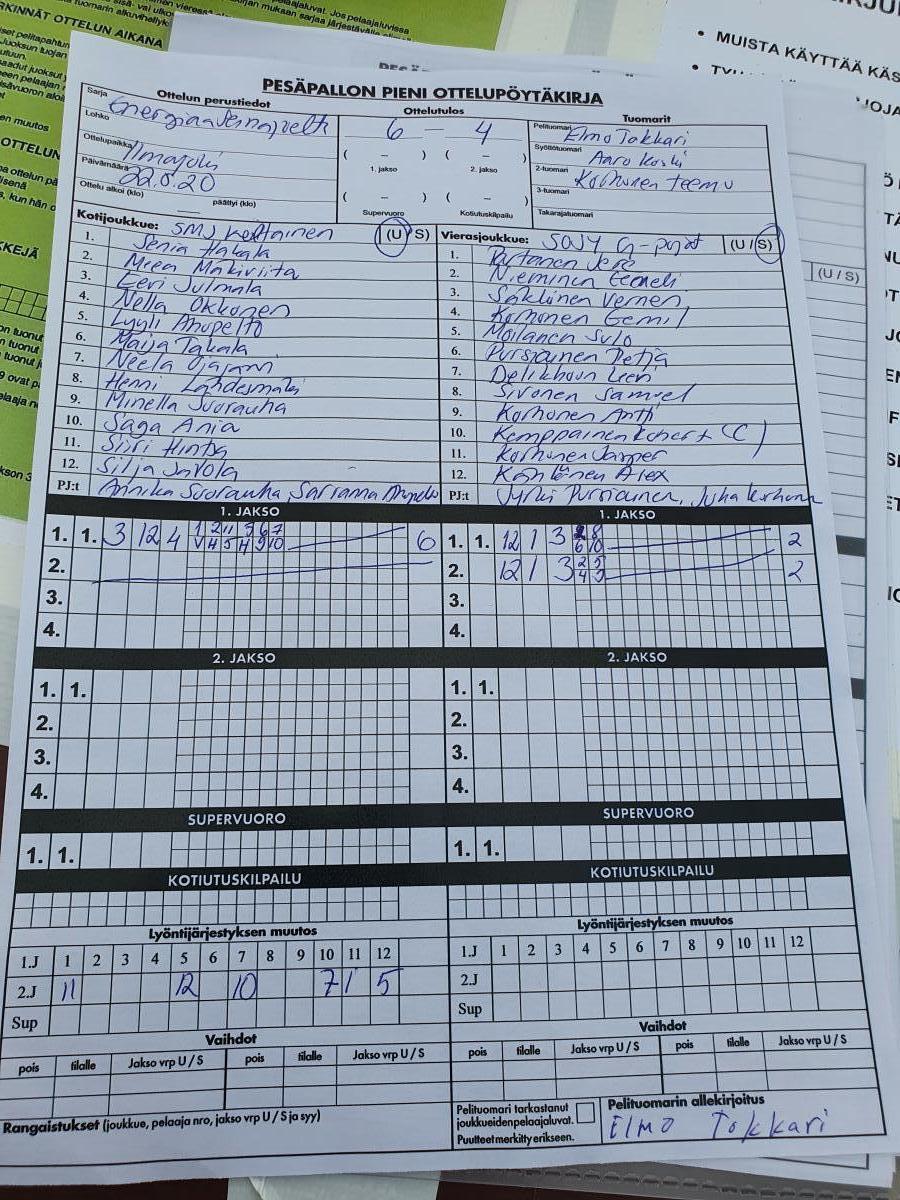 RKINNÄT OTTELUN AIKANA
OTTELUN
KKEJÄ
• MUISTA KÄYTTÄÄ KÄS
PESÄPALLON PIENI OTTELUPÖYTÄKIRJA
Ottelun perustiedot
Ottelutulos
Tuomarit
Sarja
Lohko
Ottelupaikka
Ilmajoki
Päivämäärä
22.8.20
Ottelu alkoi (klo) päättyi (klo)
6 – 4
( – ) ( – )
1. jakso 2. jakso
( – ) ( – )
Supervuoro Kotiutuskilpailu
Pelituomari Elmo Takkari
Syöttötuomari Aaro Koski
2-tuomari Korhonen Teemu
3-tuomari
Takarajatuomari
Kotijoukkue: SMJ Keltainen (U/S)
1. Senia Hakala
2. Meea Mäkiviita
3. Eevi Julmala
4. Nella Okkonen
5. Lyyli Ahopelto
6. Maija Takala
7. Neela Ojajärvi
8. Henni Lähdesmäki
9. Minella Suorauha
10. Saga Ania
11. Siiri Hinta
12. Silja Savola
PJ:t Annika Suorauha, Sarianna Ahopelto
Vierasjoukkue: SOJY G-pojat (U/S)
1. Partanen Jere
2. Nieminen Eemeli
3. Säkkinen Verneri
4. Korhonen Eemil
5. Moilanen Sulo
6. Pursiainen Petja
7. Delikhoun Leen
8. Sivonen Samuel
9. Korhonen Antti
10. Kemppainen Robert (C)
11. Korhonen Jasper
12. Könkönen Alex
PJ:t Jyrki Pursiainen, Juha Korhonen
1. JAKSO
1. 1. 3 12 4 6
2.
3.
4.
1. JAKSO
1. 1. 12 1 3 2
2. 12 1 3 2
3.
4.
2. JAKSO
1. 1.
2.
3.
4.
2. JAKSO
1. 1.
2.
3.
4.
SUPERVUORO
1. 1.
SUPERVUORO
1. 1.
KOTIUTUSKILPAILU
KOTIUTUSKILPAILU
Lyöntijärjestyksen muutos
1.J 1 2 3 4 5 6 7 8 9 10 11 12
2.J 11 12 10 7 1 5
Sup
Lyöntijärjestyksen muutos
1.J 1 2 3 4 5 6 7 8 9 10 11 12
2.J
Sup
Vaihdot
pois tilalle Jakso vrp U / S pois tilalle Jakso vrp U / S
Vaihdot
pois tilalle Jakso vrp U / S pois tilalle Jakso vrp U / S
Rangaistukset (joukkue, pelaaja nro, jakso vrp U / S ja syy)
Pelituomari tarkastanut
joukkueidenpelaajaluvat.
Puutteet merkitty erikseen.
Pelituomarin allekirjoitus
Elmo Takkari
(U / S)